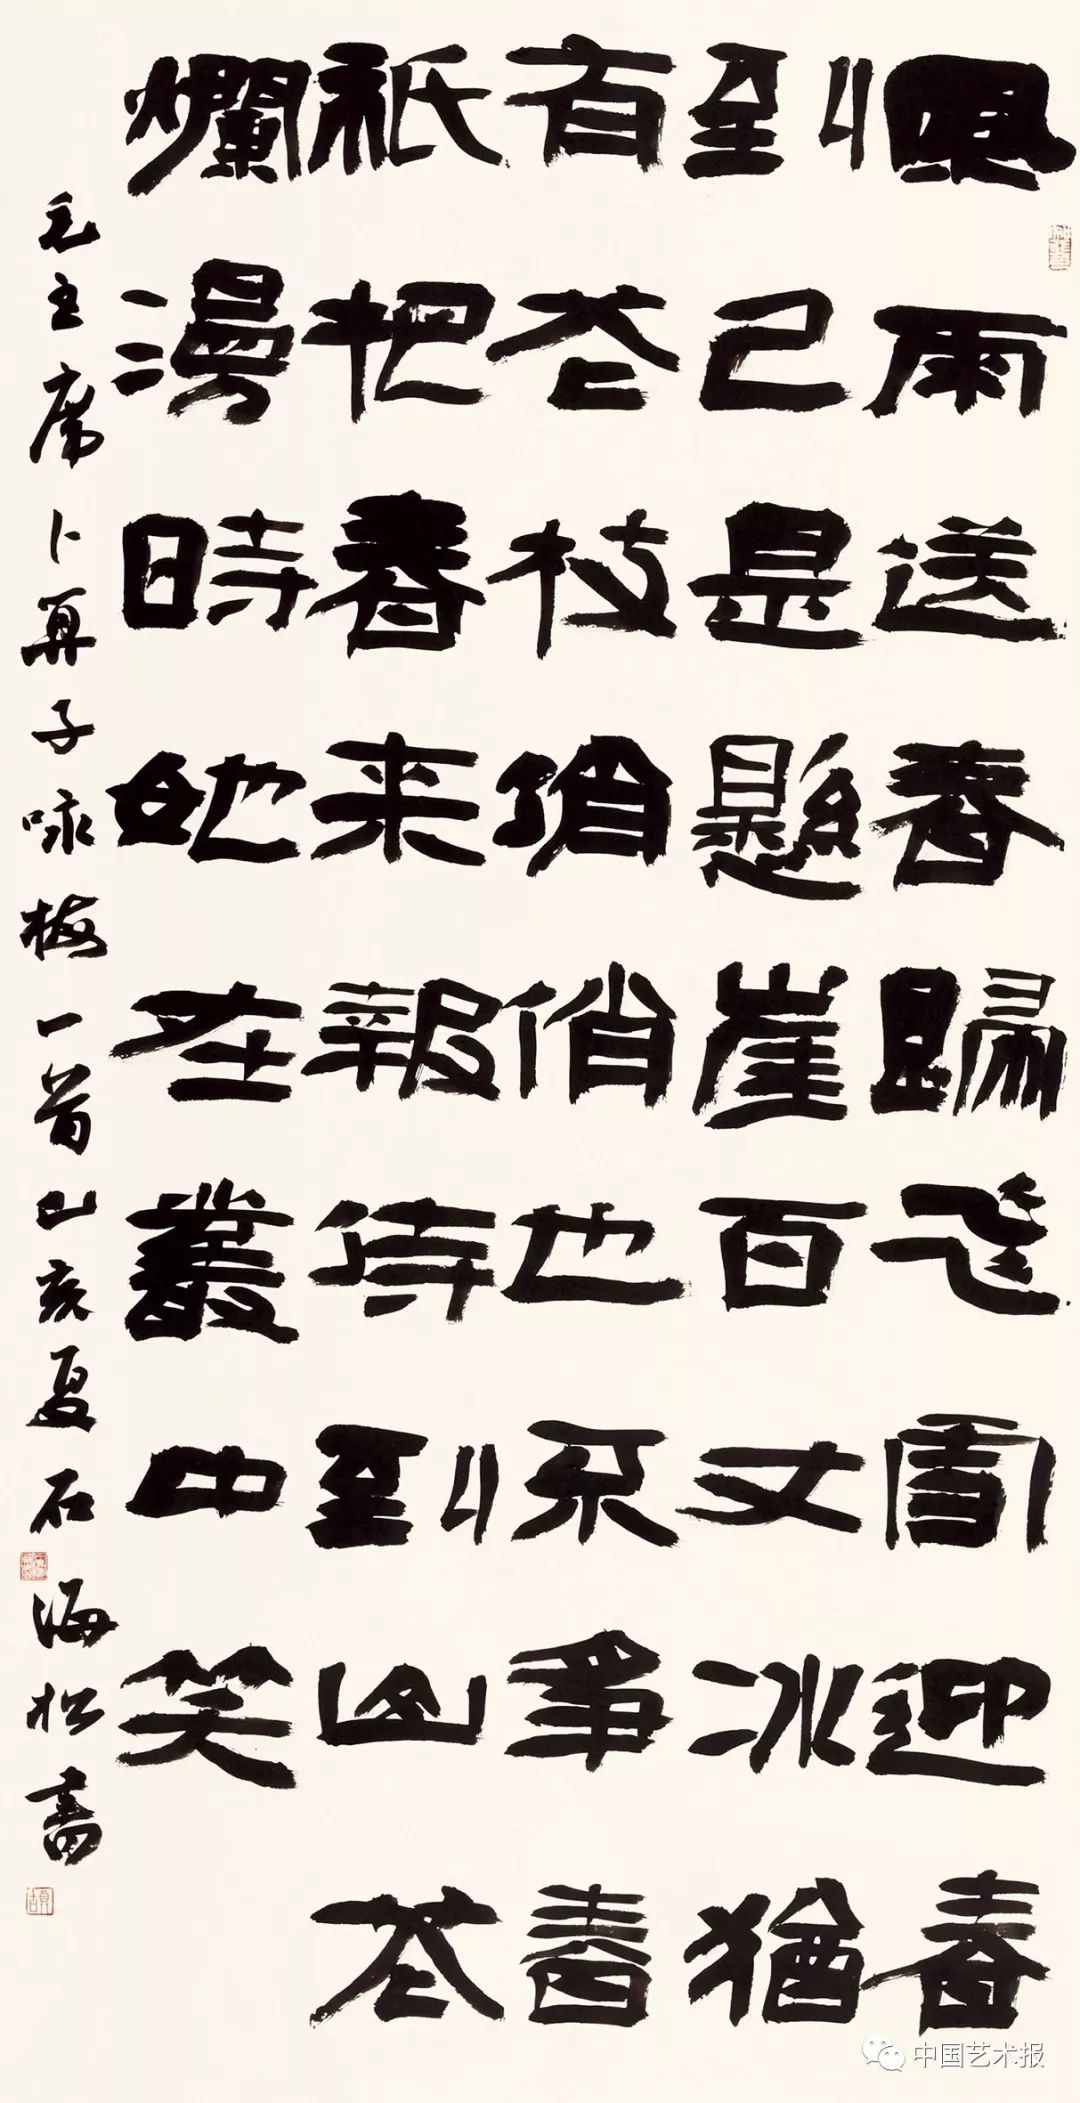 風雨送春歸飛雪迎春
到已是懸崖百丈冰猶
有花枝俏俏也不爭春
祇把春来報待到山花
爛漫時她在叢中笑
毛主席卜算子咏梅一首己亥夏石海松書
中国艺术报